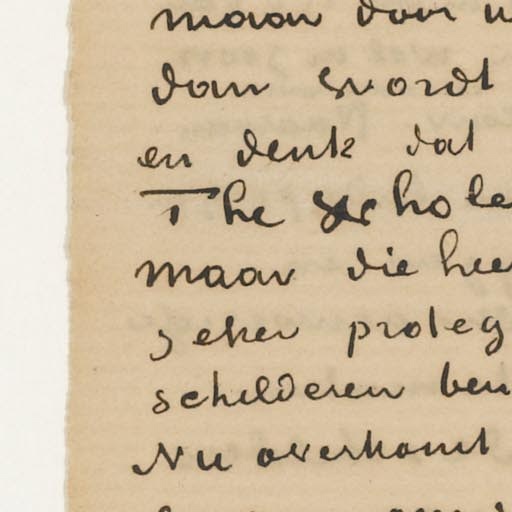 maar door
dan wordt
en denk dat
The schole
maar die hee
zeker proteg
schilderen ben
Nu overkomt